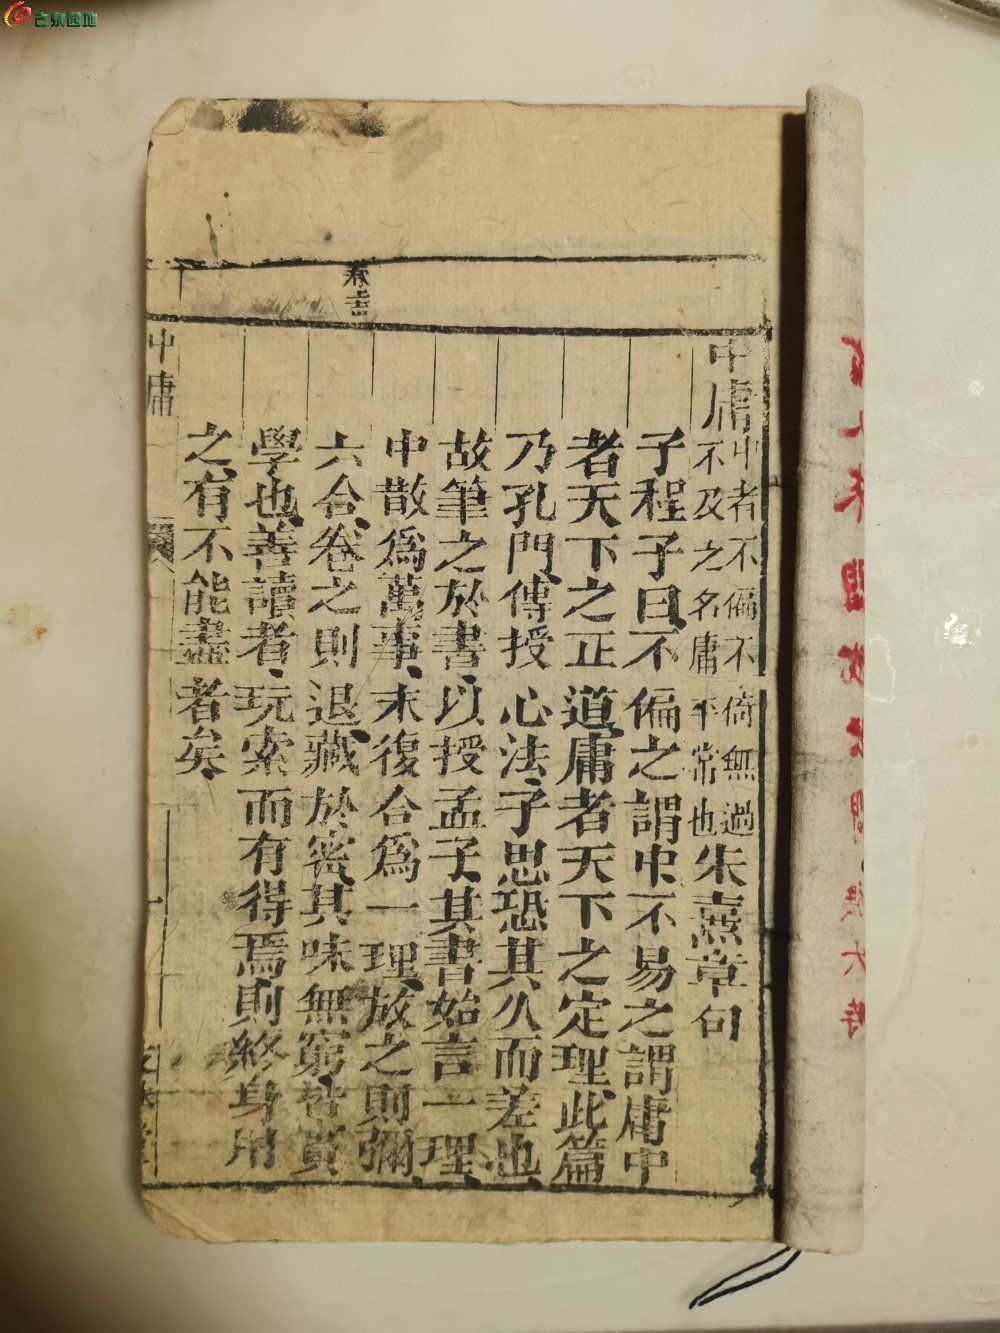 古泉园地
卷
中庸 中者不偏不倚無過
不及之名庸平常也 朱熹章句
子程子曰、不偏之謂中不易之謂庸中
者天下之正道、庸者天下之定理、此篇
乃孔門傳授心法、子思恐其久而差也、
故筆之於書、以授孟子、其書始言一理、
中散爲萬事、末復合爲一理、放之則彌
六合、卷之則退藏於密、其味無窮、皆實
學也、善讀者、玩索而有得焉、則終身用
之、有不能盡者矣、
中庸
一